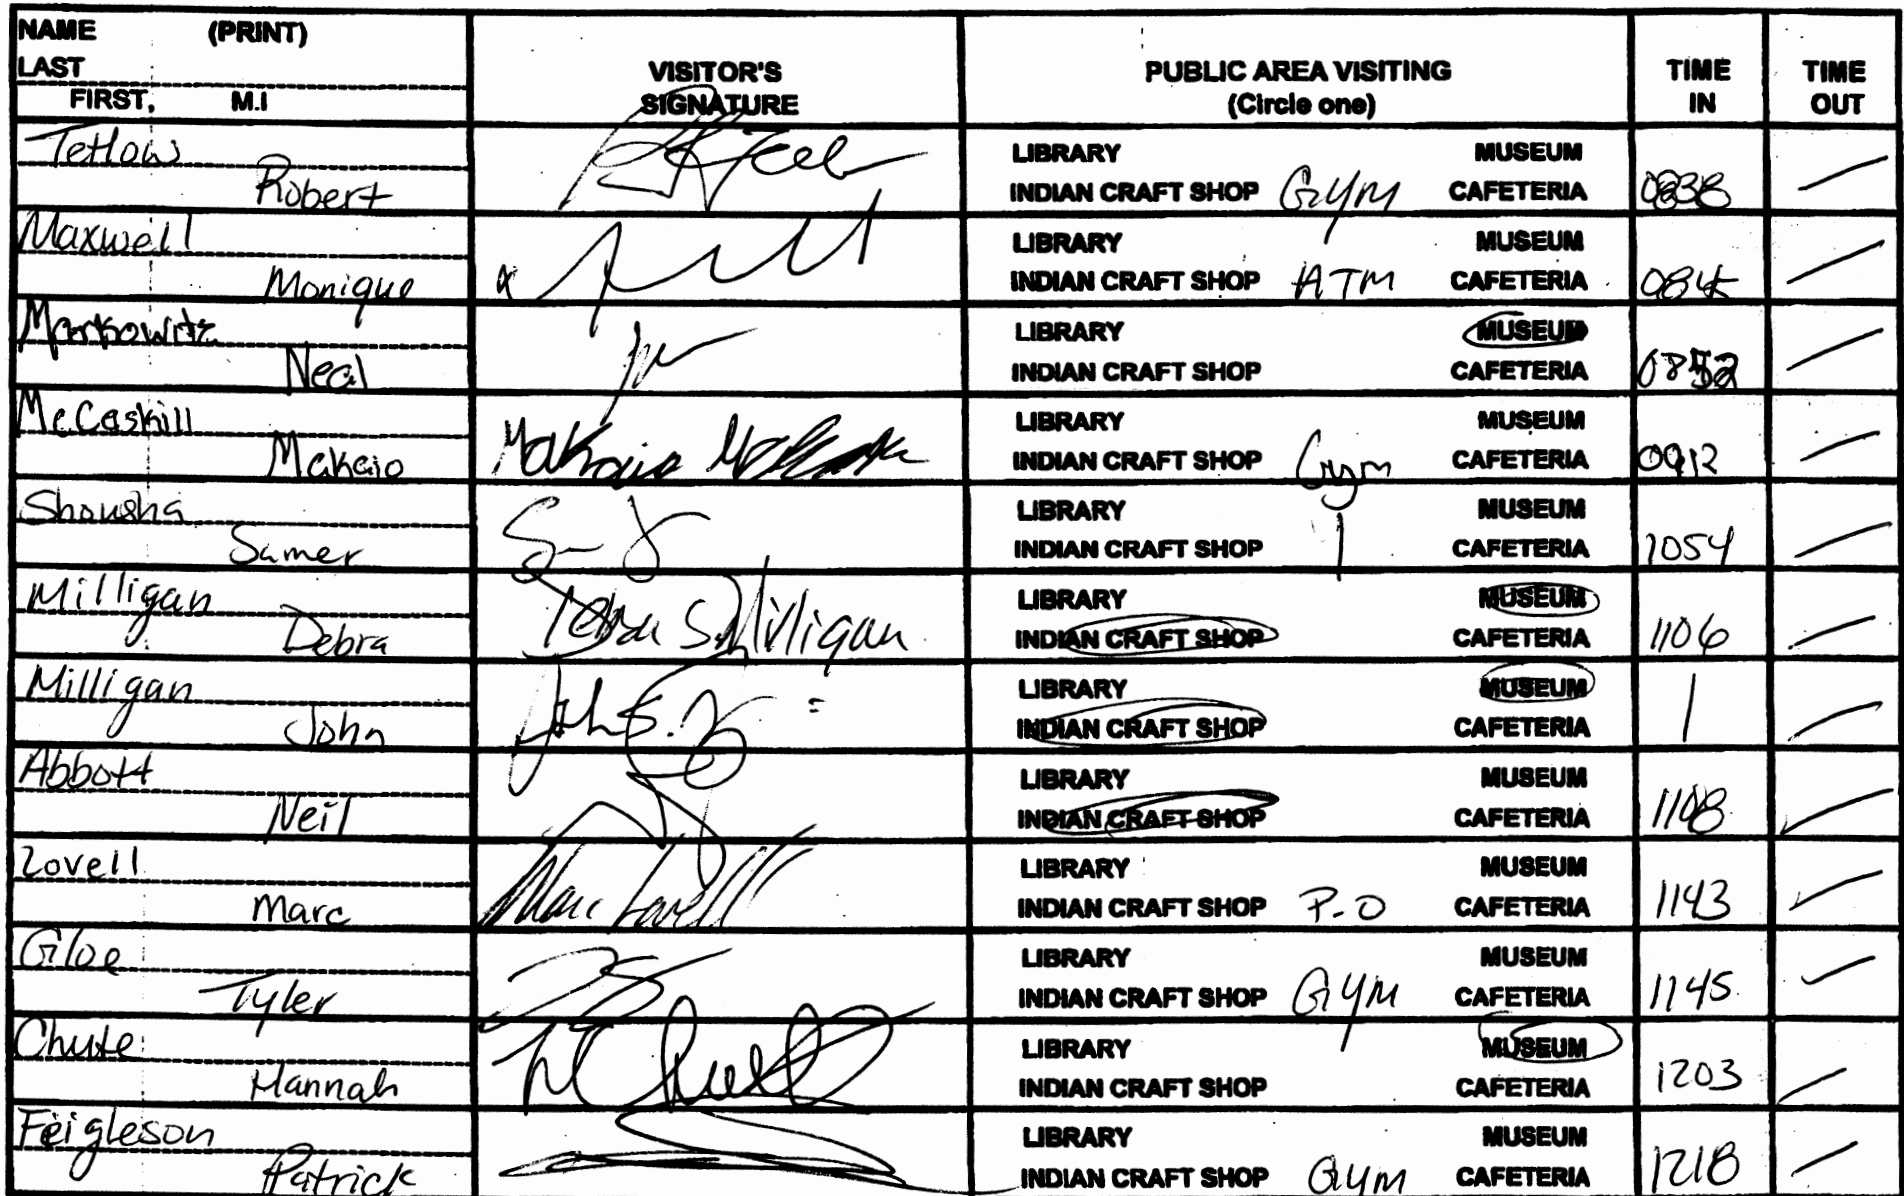 NAME (PRINT)
LAST
FIRST, M.I
VISITOR'S
SIGNATURE
PUBLIC AREA VISITING
(Circle one)
TIME
IN
TIME
OUT
Tetlow
Robert
LIBRARY MUSEUM
INDIAN CRAFT SHOP GYM CAFETERIA
0838
Maxwell
Monique
LIBRARY MUSEUM
INDIAN CRAFT SHOP ATM CAFETERIA
0845
Markowitz
Neal
LIBRARY MUSEUM
INDIAN CRAFT SHOP CAFETERIA
0852
McCaskill
Makaio
Makaio
LIBRARY MUSEUM
INDIAN CRAFT SHOP Gym CAFETERIA
0912
Shousha
Samer
LIBRARY MUSEUM
INDIAN CRAFT SHOP CAFETERIA
1054
Milligan
Debra
Debra S Milligan
LIBRARY MUSEUM
INDIAN CRAFT SHOP CAFETERIA
1106
Milligan
John
LIBRARY MUSEUM
INDIAN CRAFT SHOP CAFETERIA
Abbott
Neil
LIBRARY MUSEUM
INDIAN CRAFT SHOP CAFETERIA
1108
Lovell
Marc
Marc Lovell
LIBRARY MUSEUM
INDIAN CRAFT SHOP P-O CAFETERIA
1143
Gloe
Tyler
LIBRARY MUSEUM
INDIAN CRAFT SHOP GYM CAFETERIA
1145
Chute
Hannah
LIBRARY MUSEUM
INDIAN CRAFT SHOP CAFETERIA
1203
Feigleson
Patrick
LIBRARY MUSEUM
INDIAN CRAFT SHOP GYM CAFETERIA
1218